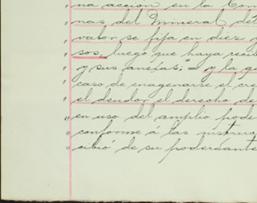 na accion en la Com
nas del Mineral de
valor se fija en diez
sos, luego que haya
y sus anexas; y la
caso de enagenarse el cre
el deudor el derecho de
en uso del amplio pode
conforme á las instruc
cibió de su poderdante